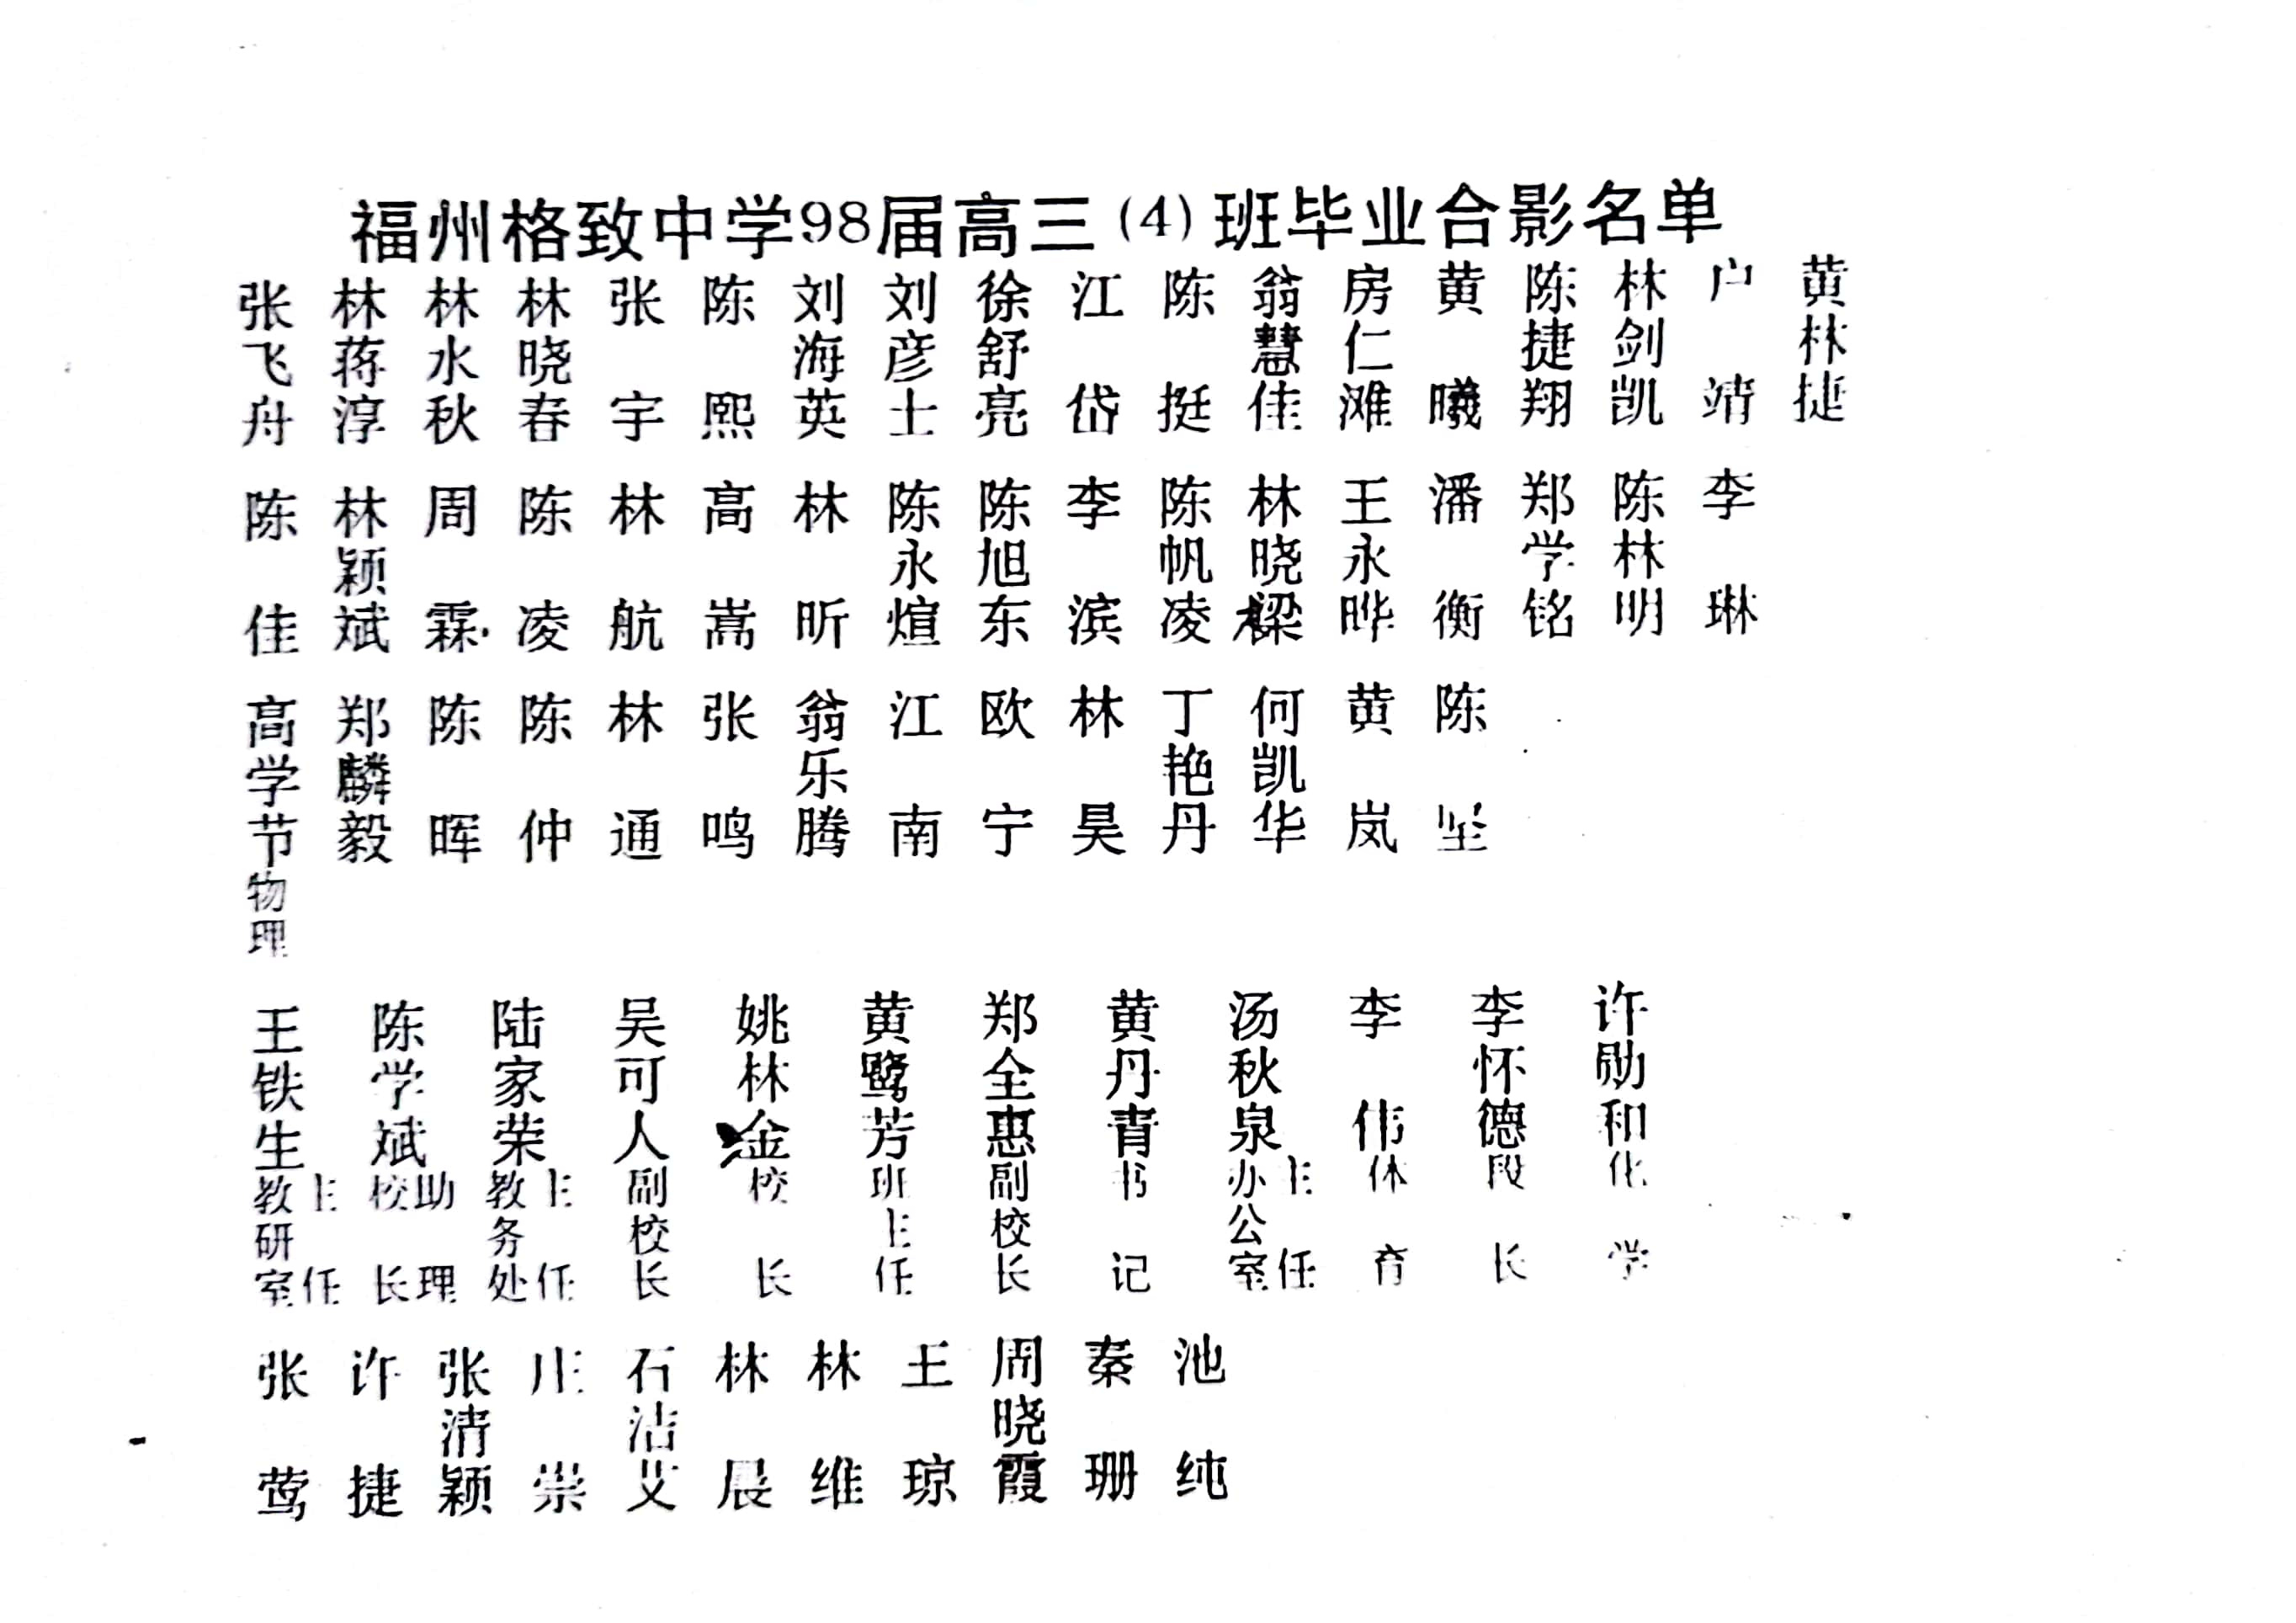 福州格致中学98届高三(4)班毕业合影名单
张飞舟 林蒋淳 林水秋 林晓春 张宇 陈熙 刘海英 刘彦士 徐舒亮 江岱 陈挺 翁慧佳 房仁滩 黄曦 陈捷翔 林剑凯 户靖 黄林捷
陈佳 林颖斌 周霖 陈凌 林航 高嵩 林昕 陈永煊 陈旭东 李滨 陈帆凌 林晓樑 王永晔 潘衡 郑学铭 陈林明 李琳
高学节物理 郑麟毅 陈晖 陈仲 林通 张鸣 翁乐腾 江南 欧宁 林昊 丁艳丹 何凯华 黄岚 陈坚
王铁生教研室主任 陈学斌校长助理 陆家荣教务处主任 吴可人副校长 姚林金校长 黄鹭芳班主任 郑全惠副校长 黄丹青书记 汤秋泉办公室主任 李伟体育 李怀德段长 许勋和化学
张莺 许捷 张清颖 庄崇 石洁艾 林晨 林维 王琼 周晓霞 秦珊 池纯